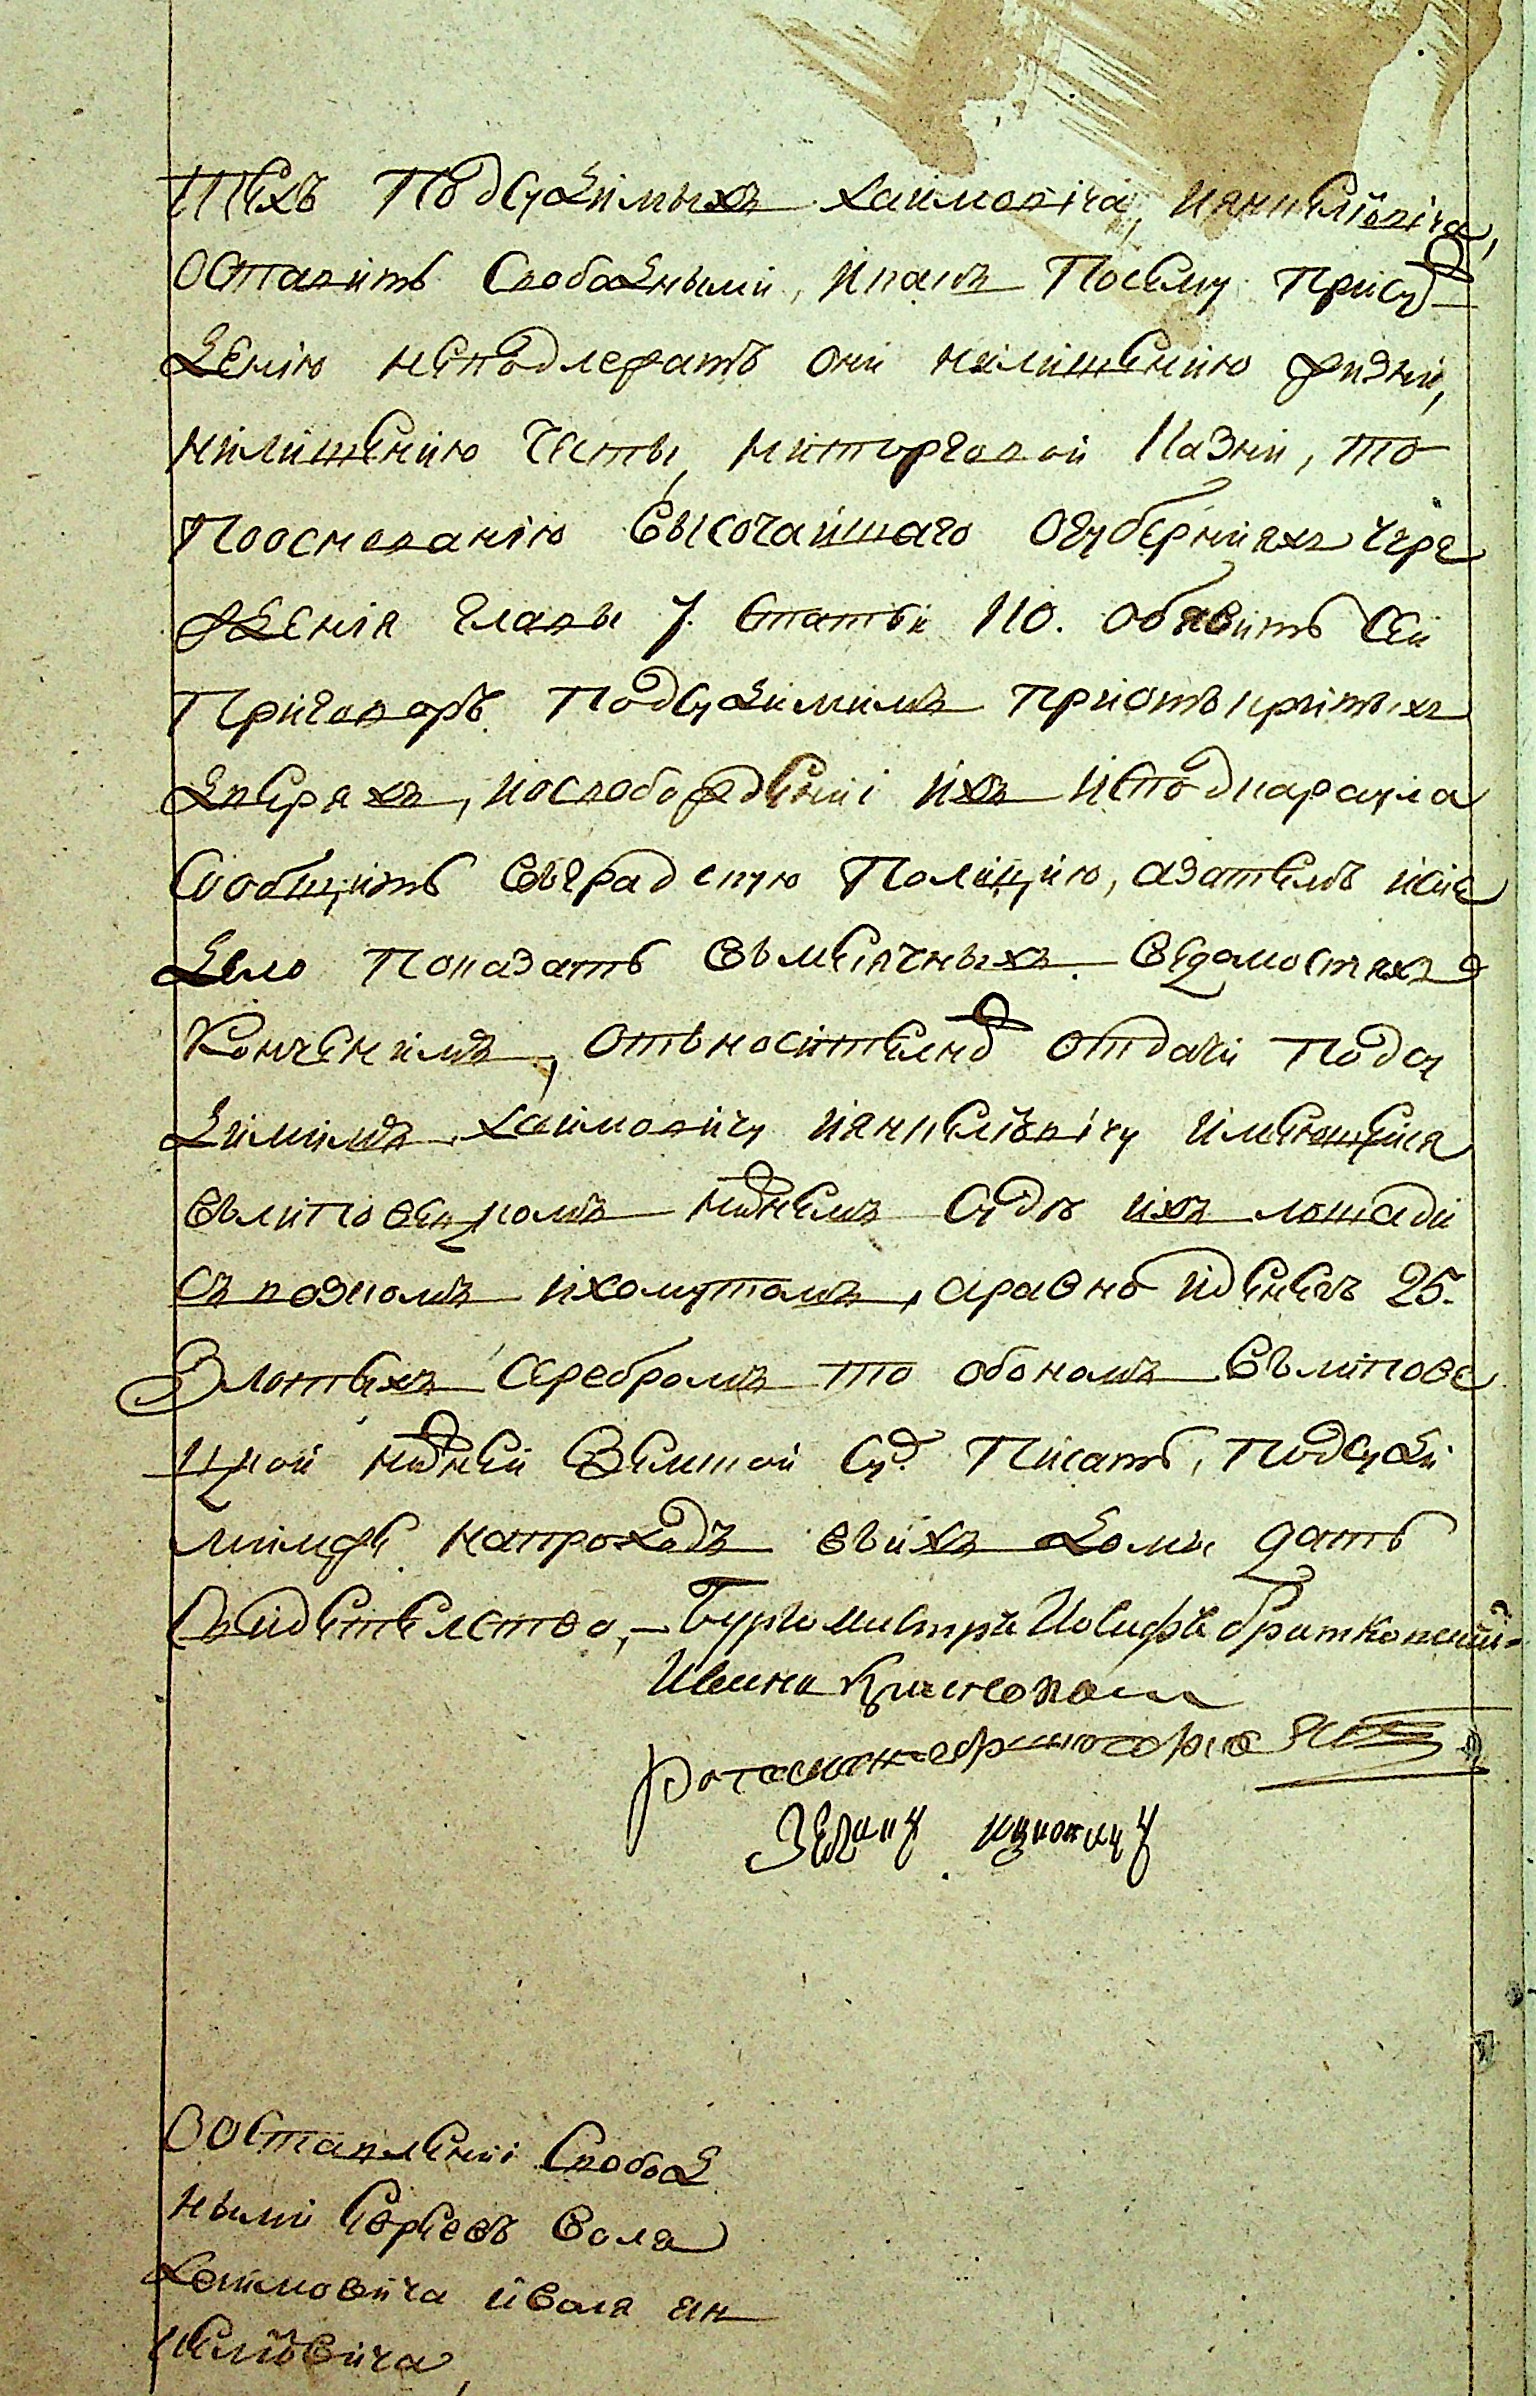 тѣхъ подсудимыхъ хаимовича, иянкелiовича,
оставить свободными, и какъ посему присуж
дению неподлежатъ они нилишению жизни,
нилишению чести, ниторговой казни, то
пооснованию высочайшаго огубернияхъ учре
ждения главы 7. статьи 110. обявить сей
приговоръ подсудимимъ приотъкритыхъ
дверяхъ, иосвобождении ихъ исподкараула
сообщить въградскую полицию, азатемъ исие
дело показать въмесячныхъ ведомостяхъ
конченимъ, отъносително отдачи подсу
димимъ хаимовичу иянкелiовичу имеющейся
вълиповецкомъ нижнемъ суде ихъ лошади
съ возкомъ ихомутомъ, аравно иденегъ 25.
злотыхъ серебромъ то обономъ вълипове
цкой нижней земской суд. писать, подсуди
мимже напроходъ въихъ доми дать
свидетелство, — Бургомистръ Иосифъ братковский
О оставлении свобод
ными евреевъ Воля
хаимовича иВоля ян
келiовича